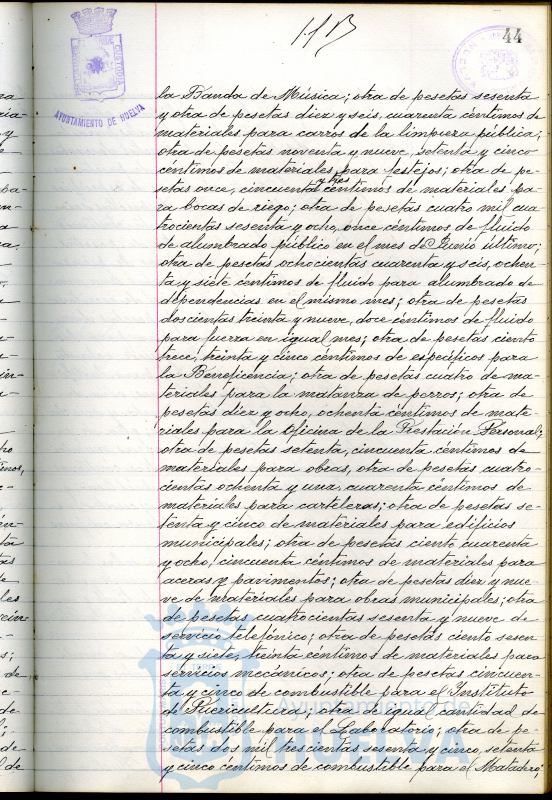 44
AYUNTAMIENTO DE HUELVA
la Banda de Música; otra de pesetas sesenta
y otra de pesetas diez y seis, cuarenta céntimos de
materiales para carros de la limpieza pública;
otra de pesetas noventa y nueve, setenta y cinco
céntimos de materiales para festejos; otra de pe-
setas once, cincuenta y tres céntimos de materiales pa-
ra bocas de riego; otra de pesetas cuatro mil cua
trocientas sesenta y ocho, once céntimos de fluido
de alumbrado público en el mes de Junio último;
otra de pesetas ochocientas cuarenta y seis, ochen-
ta y siete céntimos de fluido para alumbrado de
dependencias en el mismo mes; otra de pesetas
doscientas treinta y nueve, doce céntimos de fluido
para fuerza en igual mes; otra de pesetas ciento
trece, treinta y cinco céntimos de específicos para
la Beneficencia; otra de pesetas cuatro de ma-
teriales para la matanza de perros; otra de
pesetas diez y ocho, ochenta céntimos de mate-
riales para la Oficina de la Prestación Personal;
otra de pesetas setenta, cincuenta céntimos de
materiales para obras, otra de pesetas cuatro-
cientas ochenta y una, cuarenta céntimos de
materiales para carteleras; otra de pesetas se-
tenta y cinco de materiales para edificios
municipales; otra de pesetas ciento cuarenta
y ocho, cincuenta céntimos de materiales para
aceras y pavimentos; otra de pesetas diez y nue-
ve de materiales para obras municipales; otra
de pesetas cuatrocientas sesenta y nueve de
servicio telefónico; otra de pesetas ciento sesen
ta y siete, treinta céntimos de materiales para
servicios mecánicos; otra de pesetas cincuen-
ta y cinco de combustible para el Instituto
de Puericultura; otra de igual cantidad de
combustible para el Laboratorio; otra de pe-
setas dos mil trescientas sesenta y cinco, setenta
y cinco céntimos de combustible para el Matadero;
Ayuntamiento de
HUELVA